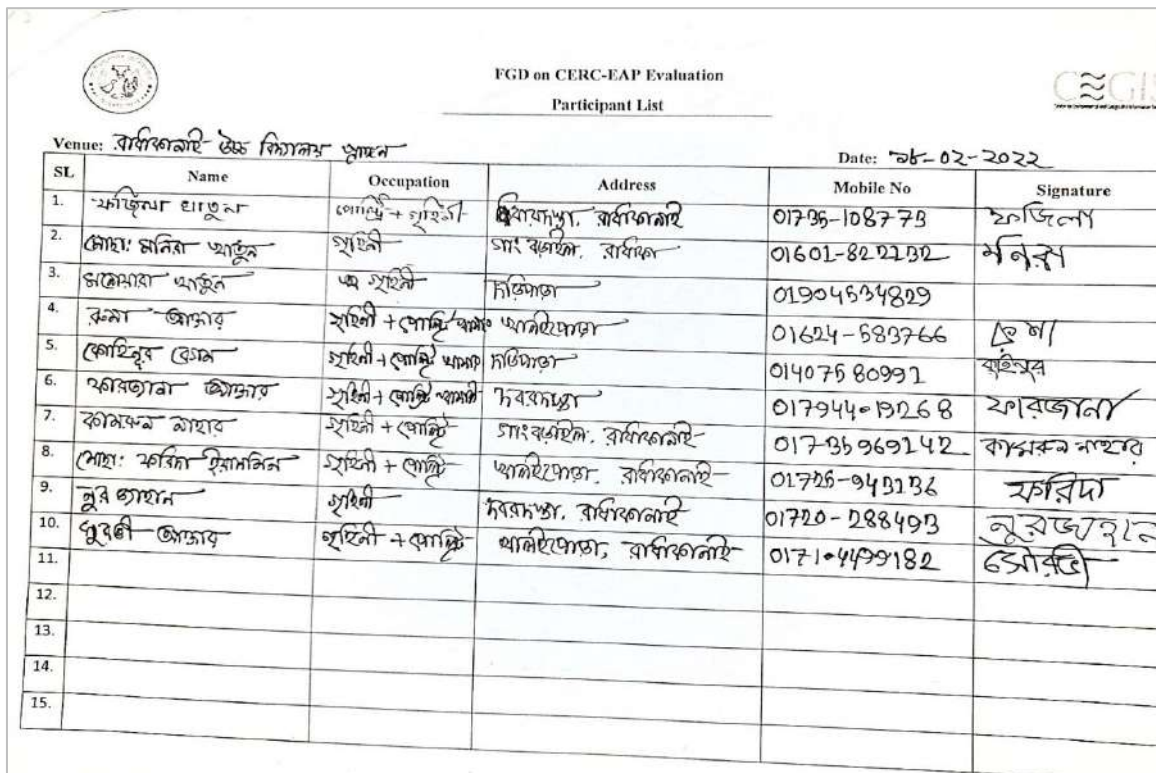 FGD on CERC-EAP Evaluation
Participant List
CEGIS
Venue: রাধাকানাই উচ্চ বিদ্যালয় প্রাঙ্গন
Date: 16-02-2022
SL Name Occupation Address Mobile No Signature
1. ফজিলা খাতুন পোল্ট্রি + গৃহিনী রাধাকানাই 01735-108773 ফজিলা
2. মোছা: মনিরা খাতুন গৃহিনী 01601-822232 মনিরা
3. মনোয়ারা খাতুন গৃহিনী দড়িপাড়া 01904534829
4. রুমা আক্তার গৃহিনী + পোল্ট্রি খামার খালইপোড়া 01624-583766 রুমা
5. কোহিনুর বেগম গৃহিনী + পোল্ট্রি খামার দড়িপাড়া 01407580991
6. ফারজানা আক্তার গৃহিনী + পোল্ট্রি খামার দবরদস্তা ফারজানা
7. কামরুন নাহার গৃহিনী + পোল্ট্রি রাধাকানাই 01735969242 কামরুন নাহার
8. মোছা: ফরিদা ইয়াসমিন গৃহিনী + পোল্ট্রি খালইপোড়া, রাধাকানাই ফরিদা
9. নুর জাহান গৃহিনী দবরদস্তা, রাধাকানাই 01720-288493 নুরজাহান
10. আক্তার গৃহিনী + পোল্ট্রি খালইপোড়া, রাধাকানাই সৌরভী
11.
12.
13.
14.
15.